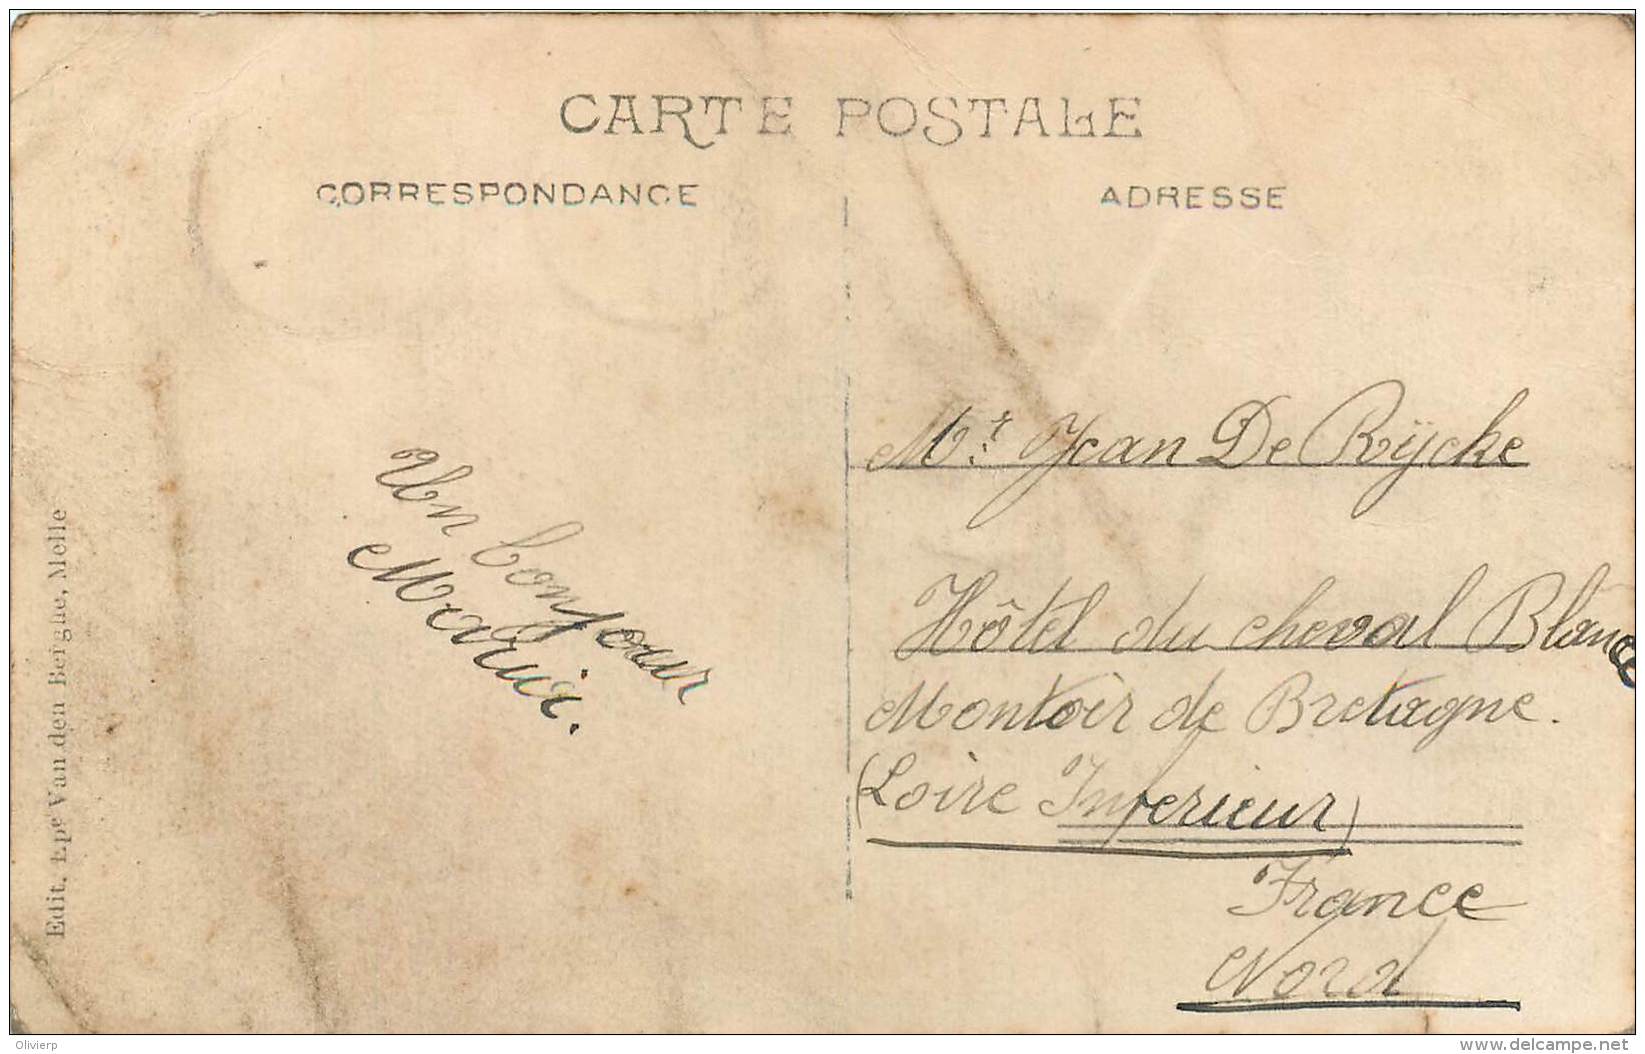 CARTE POSTALE
CORRESPONDANCE
ADRESSE
Un bonjour
Edit. Epe Van den Berghe, Melle
Mr. Jean De Rÿcke
Hôtel du cheval Blance
Montoir de Bretagne.
(Loire Inferieur)
France
Nord
Olivierp
www.delcampe.net